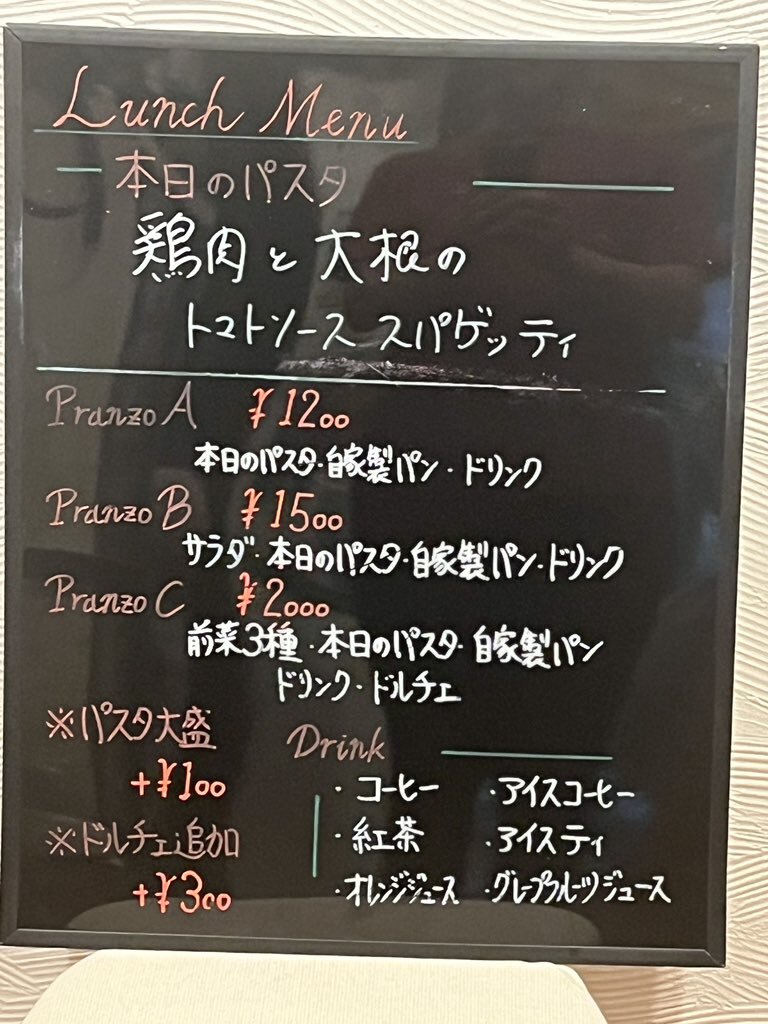 Lunch Menu
本日のパスタ
鶏肉と大根の
トマトソース スパゲッティ
Pranzo A ¥1200
本日のパスタ・自家製パン・ドリンク
Pranzo B ¥1500
サラダ・本日のパスタ・自家製パン・ドリンク
Pranzo C ¥2000
前菜3種・本日のパスタ・自家製パン
ドリンク・ドルチェ
※パスタ大盛
+¥100
※ドルチェ追加
+¥300
Drink
・コーヒー ・アイスコーヒー
・紅茶 ・アイスティ
・オレンジジュース ・グレープフルーツジュース